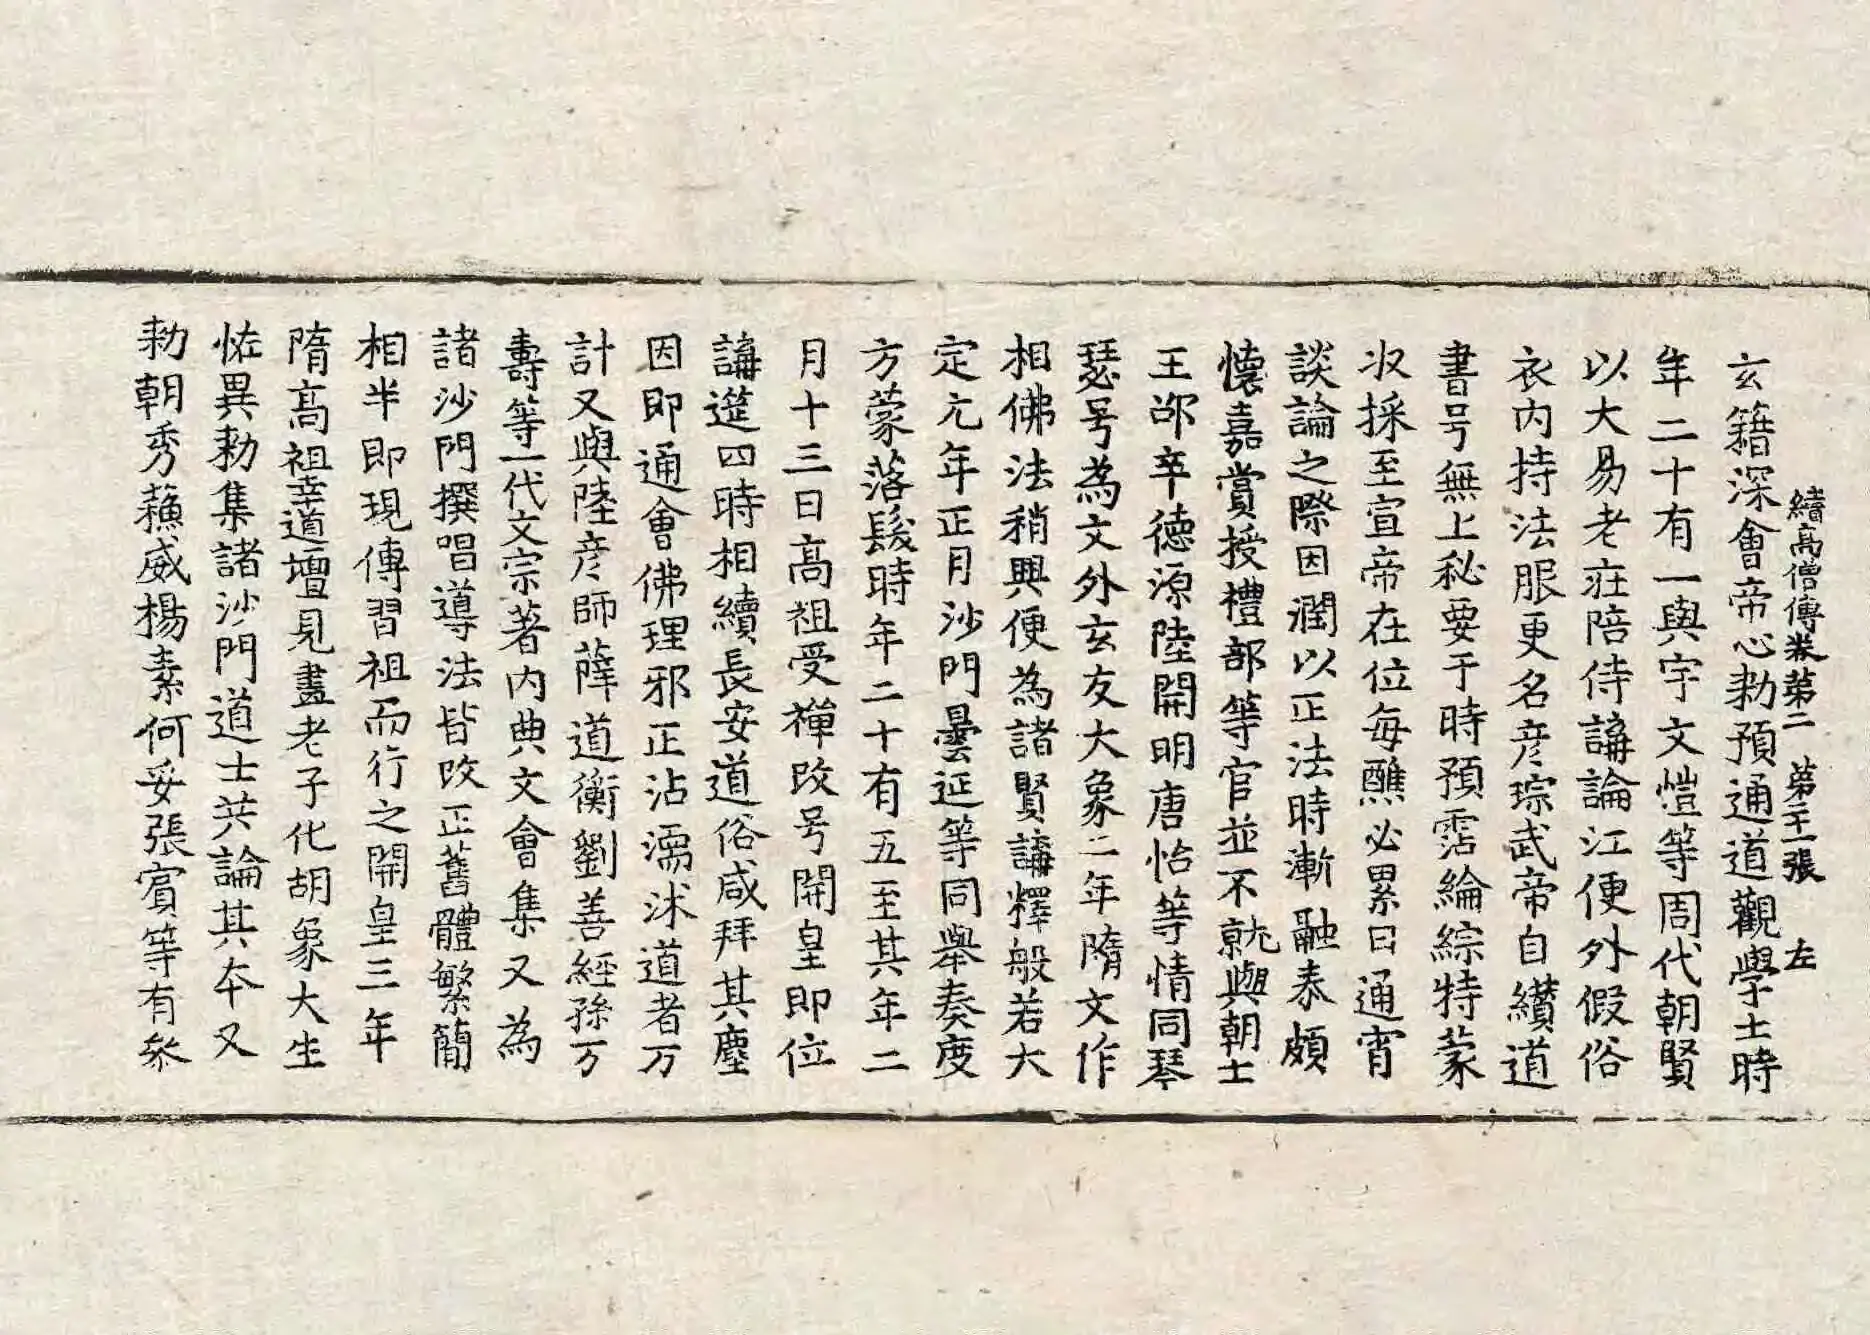 續高僧傳卷第二　第二十一張　左
玄籍深會帝心勑預通道觀學士時
年二十有一與宇文愷等周代朝賢
以大易老莊陪侍講論江便外假俗
衣內持法服更名彦琮武帝自纘道
書号無上秘要于時預霑綸綜特蒙
収採至宣帝在位每醮必累日通宵
談論之際因潤以正法時漸融泰頗
懷嘉賞授禮部等官並不就與朝士
王邵辛德源陸開明唐怡等情同琴
瑟号為文外玄友大象二年隋文作
相佛法稍興便為諸賢講釋般若大
定元年正月沙門曇延等同舉奏度
方蒙落髮時年二十有五至其年二
月十三日高祖受禪改号開皇即位
講筵四時相續長安道俗咸拜其塵
因即通會佛理邪正沾濡沭道者万
計又與陸彦師薛道衡劉善經孫万
壽等一代文宗著內典文會集又為
諸沙門撰唱導法皆改正舊體繁簡
相半即現傳習祖而行之開皇三年
隋高祖幸道壇見畫老子化胡象大生
恠異勑集諸沙門道士共論其本又
勑朝秀蘓威楊素何妥張賓等有叅